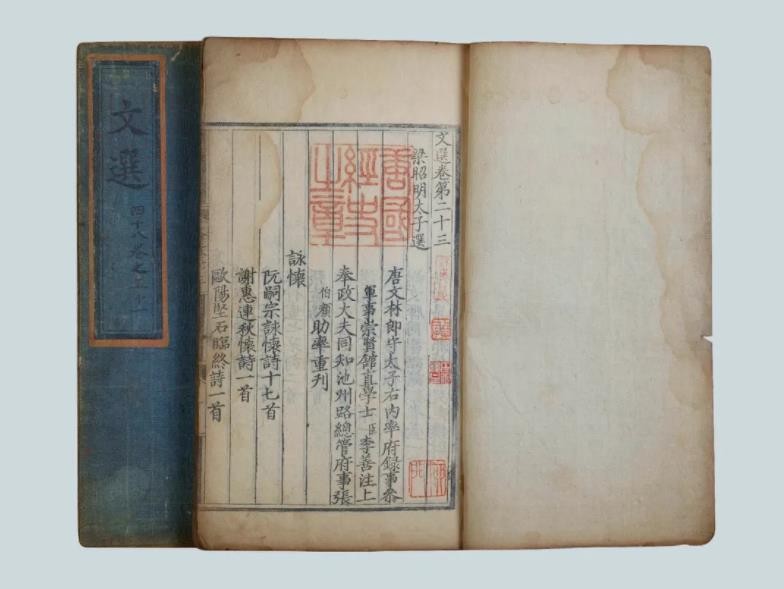 文選卷第二十三
梁昭明太子選
唐國
經史
之章
唐文林郎守太子右內率府錄事參
軍事崇賢館直學士臣李善注上
奉政大夫同知池州路總管府事張
伯顏助率重刊
詠懷
阮嗣宗詠懷詩十七首
謝惠連秋懷詩一首
歐陽堅石臨終詩一首
文選